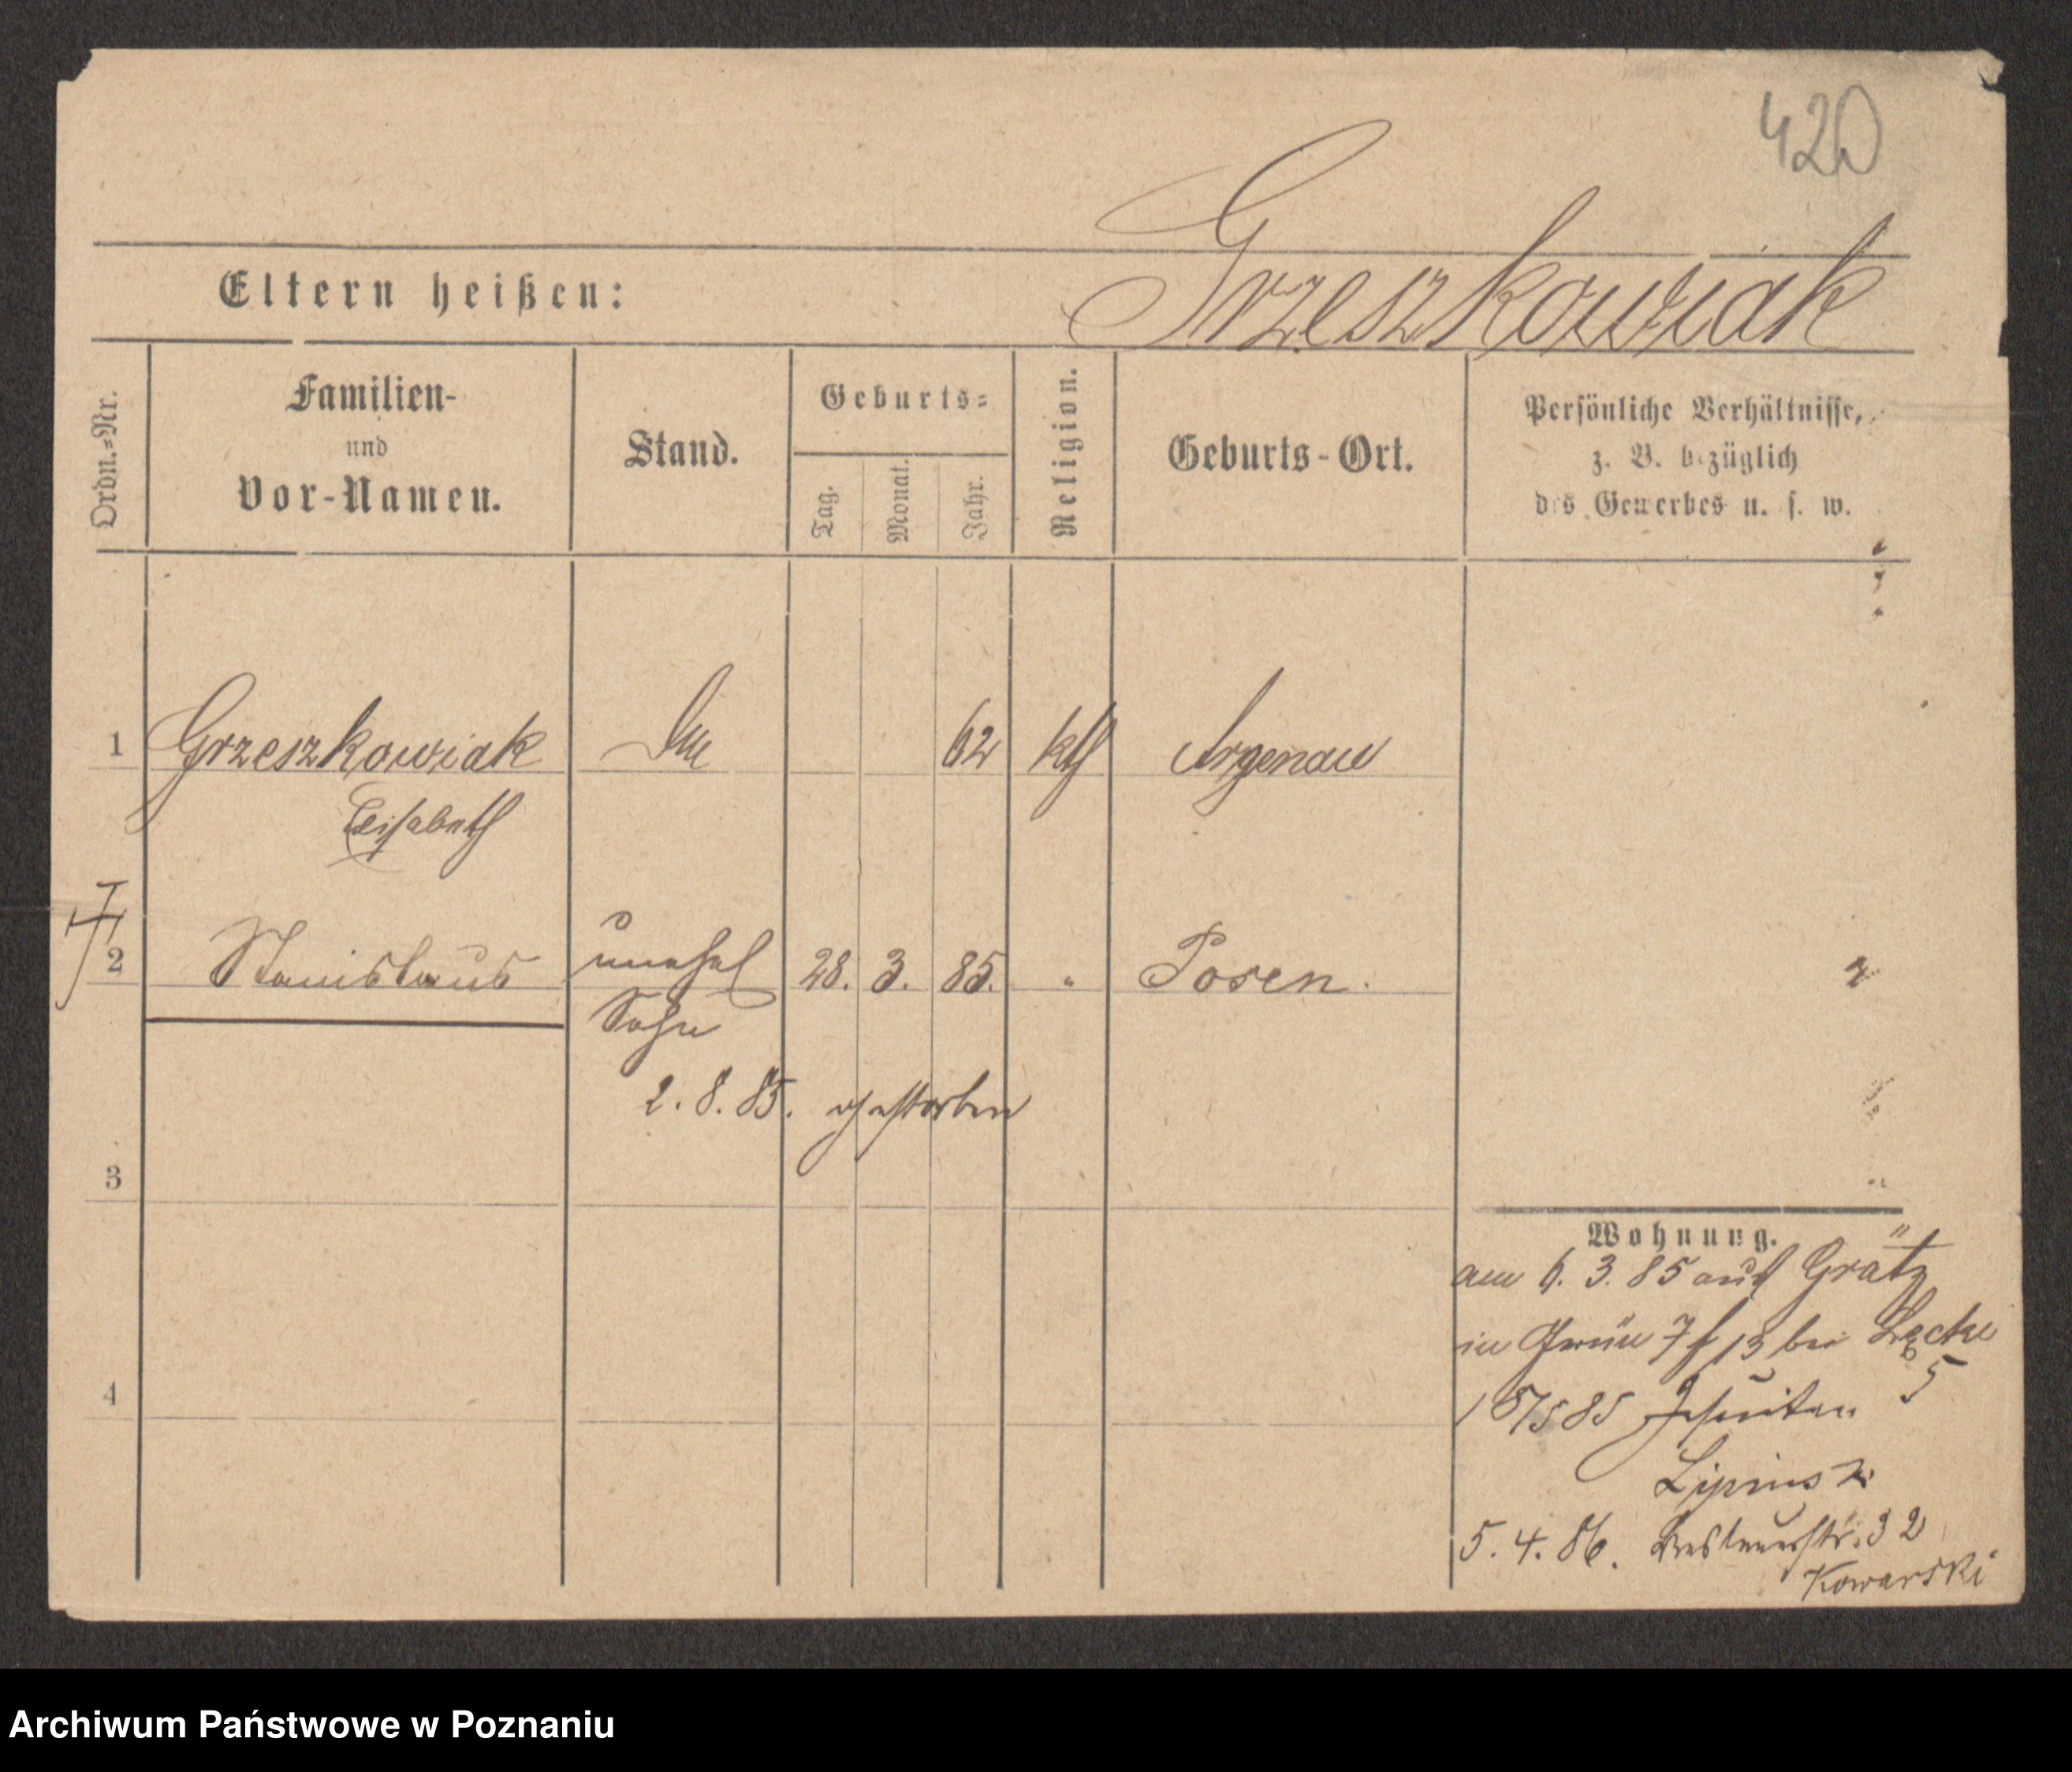 420
Grzeszkowiak
Eltern heißen:
Ordn.=Nr.
Familien-
und
Vor-Namen.
Stand.
Geburts=
Tag.
Monat.
Jahr.
Religion.
Geburts-Ort.
Persönliche Verhältnisse,
z. B. bezüglich
des Gewerbes u. s. w.
1 Grzeszkowiak 62 kth Argenau
Elisabeth
2 Stanislaus unehel 28. 3. 85. " Posen.
Sohn
2. 8. 85. gestorben
3
4
Wohnung.
am 6. 3. 85 aus Grätz
in 13 bei
5
85 Jesuiten
Lipinski
5. 4. 86. Breslauerstr. 32
Kowarski
Archiwum Państwowe w Poznaniu